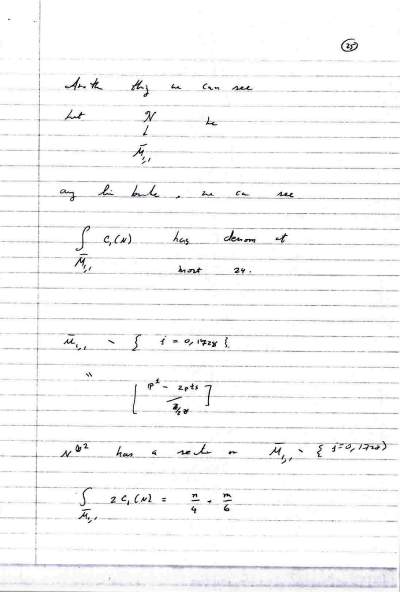 25
Another thing we can see
Let N be
↓
M̄₁,₁
any line bundle, we can see
∫_{M̄₁,₁} c₁(N) has denom at
most 24.
M̄₁,₁ ∖ { j = 0, 1728 }
"
[ P¹ - 2pts / ℤ/2ℤ ]
N^{⊗2} has a section on M̄₁,₁ ∖ { j=0, 1728 }
∫_{M̄₁,₁} 2 c₁(N) = n/4 + m/6